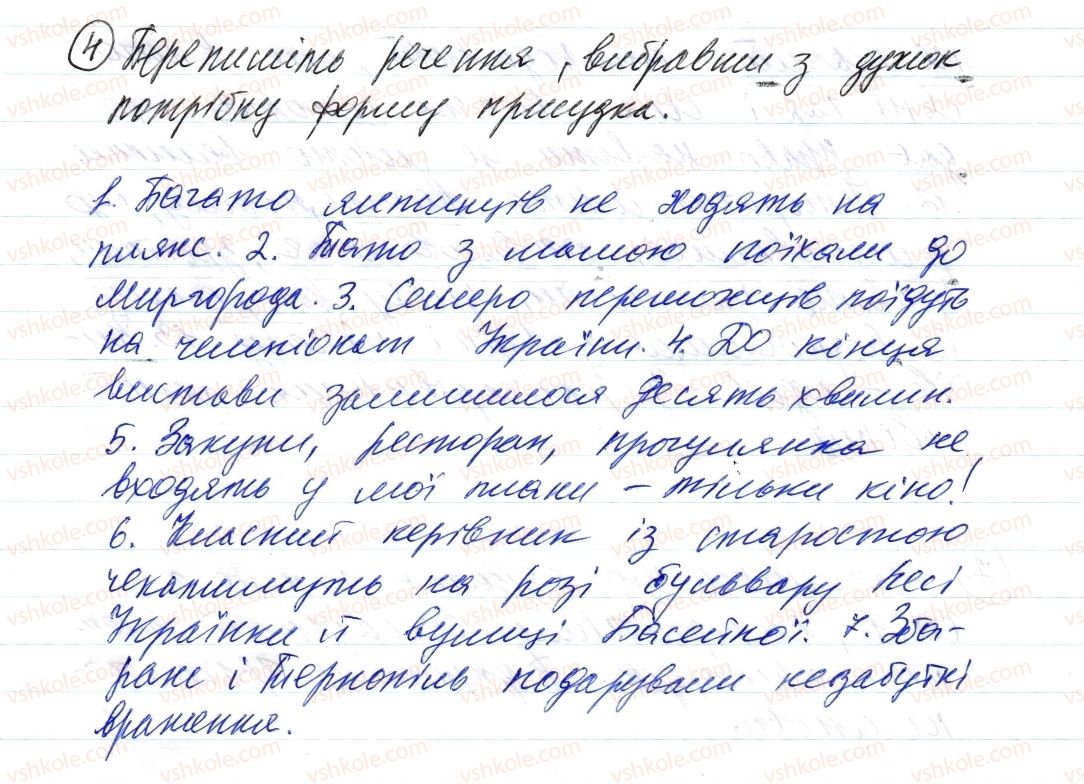 4 Перепишіть речення, вибравши з дужок
потрібну форму присудка.
1. Багато ялтинців не ходять на
пляж. 2. Тато з мамою поїхали до
Миргорода. 3. Семеро переможців поїдуть
на чемпіонат України. 4. До кінця
вистави залишилося десять хвилин.
5. Закупи, ресторан, прогулянка не
входять у мої плани – тільки кіно!
6. Класний керівник із старостою
чекатимуть на розі бульвару Лесі
Українки й вулиці Басейної. 7. Зба-
раж і Тернопіль подарували незабутні
враження.